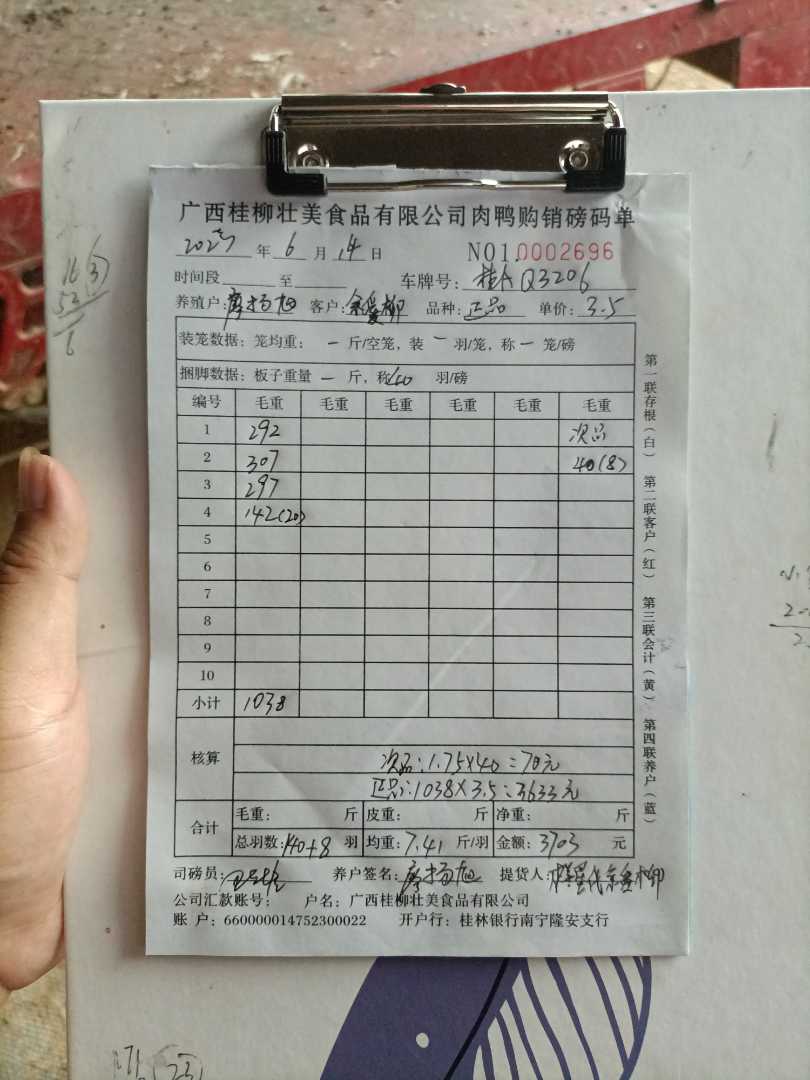 广西桂柳壮美食品有限公司肉鸭购销磅码单
年 6 月 14 日 NO10002696
时间段 至 车牌号: 桂A Q3206
养殖户: 廖扬旭 客户: 余爱柳 品种: 正品 单价: 3.5
装笼数据: 笼均重: 一 斤/空笼, 装 一 羽/笼, 称 一 笼/磅
捆脚数据: 板子重量 一 斤, 称 40 羽/磅
编号 毛重 毛重 毛重 毛重 毛重 毛重
1 292 次品
2 307 40(8)
3 297
4 142(20)
5
6
7
8
9
10
小计 1038
核算
次品:1.75×40=70元
正品:1038×3.5=3633元
合计
毛重: 斤 皮重: 斤 净重: 斤
总羽数:140+8 羽 均重:7.41 斤/羽 金额:3703 元
司磅员: 养户签名: 廖扬旭 提货人: 代余爱柳
公司汇款账号: 户名: 广西桂柳壮美食品有限公司
账 户: 660000014752300022 开户行: 桂林银行南宁隆安支行
第一联存根(白) 第二联客户(红) 第三联会计(黄) 第四联养户(蓝)
16(3)
52
6
171
(23)